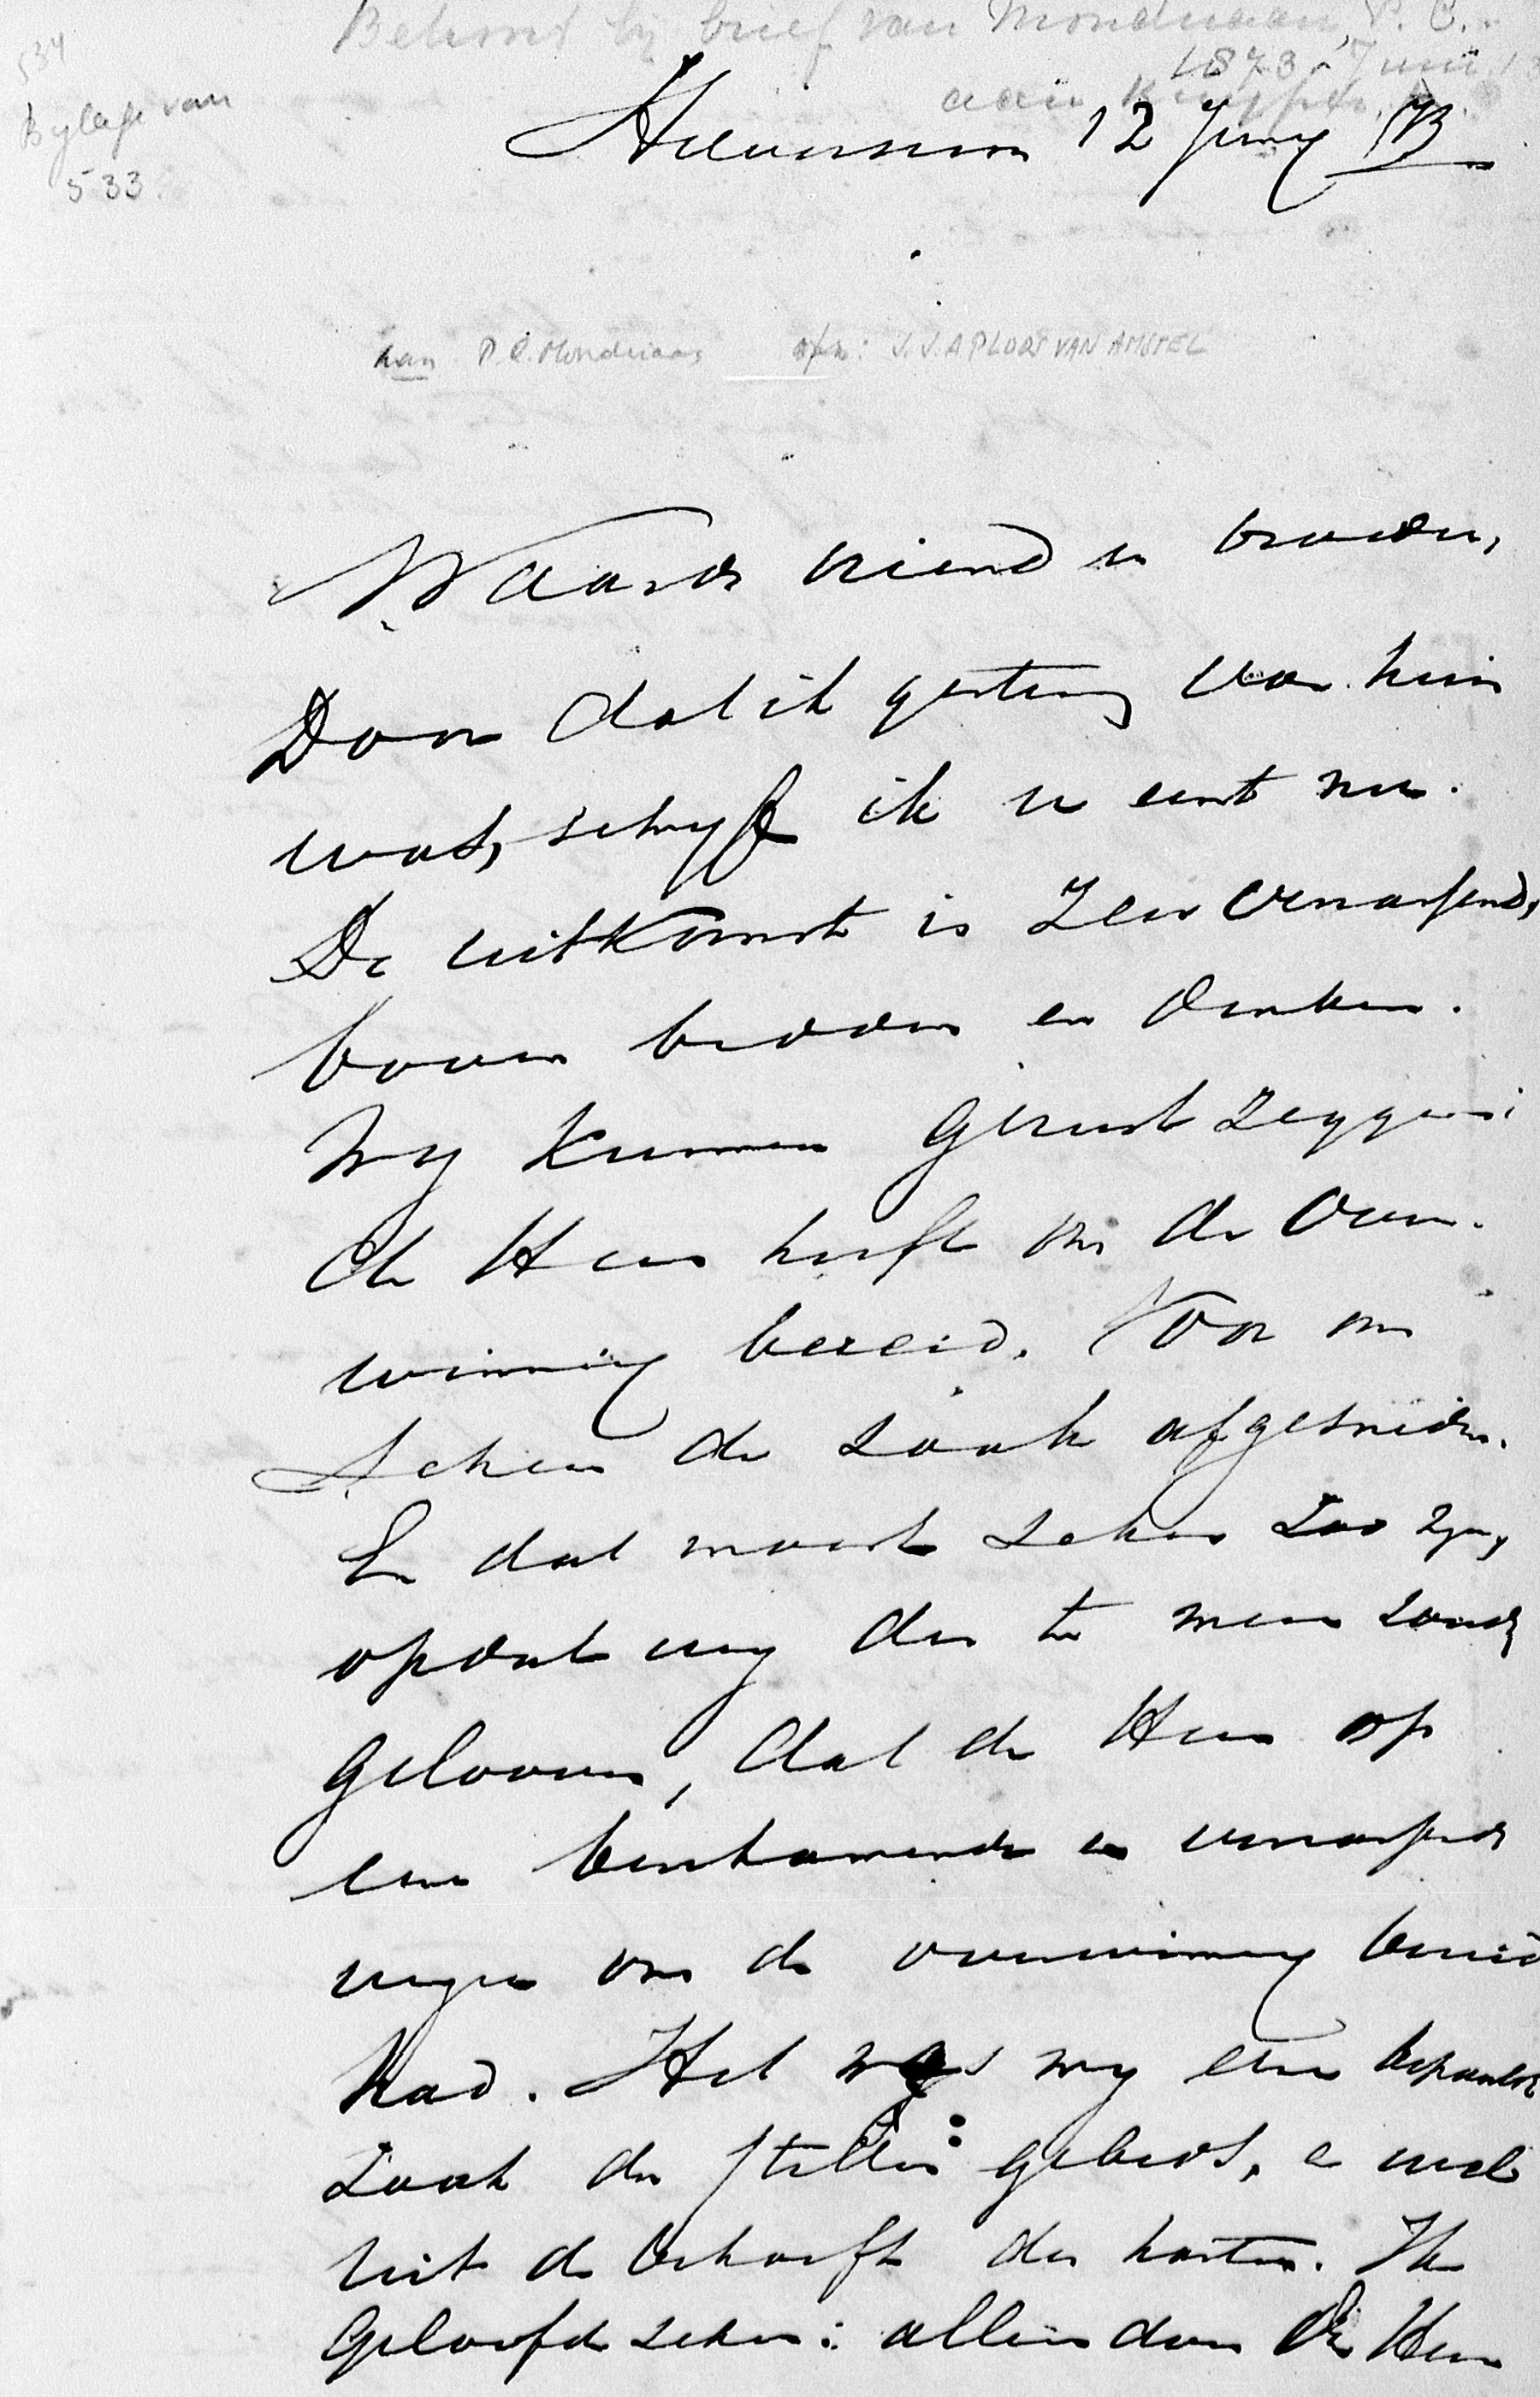 Behoort bij brief van Mondriaan, P. C.
1873 Juni 1
aan Kuyper
534
Bylage van
533.
Hilversum 12 Juny 73
aan P. C. Mondriaan afz: J. J. A PLOOS VAN AMSTEL
Waarde vriend en broeder,
Door dat ik gisteren van huis
was, schryf ik u eerst nu.
De uitkomst is zeer verrassend,
boven bidden en denken.
Wy kunnen gerust zeggen:
de Heer heeft ons de over-
winning bereid. Voor ons
scheen de zaak afgesneden.
En dat moest zeker zoo zyn,
opdat wy des te meer zoude
gelooven, dat de Heer op
eene beschamende en verrassende
wyze ons de overwinning bereid
had. Het was my eene bepaalde
zaak des stillen gebeds, en wel
uit de behoefte des harten. Ik
geloofde zeker: alleen door den Heer